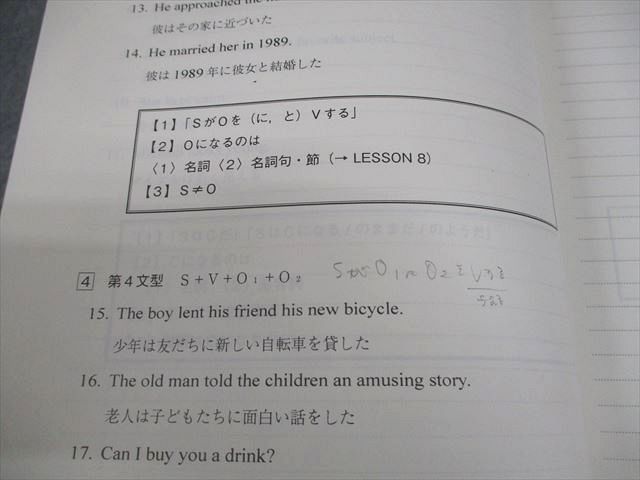 13. He approached the
彼はその家に近づいた
14. He married her in 1989.
彼は 1989 年に彼女と結婚した
【1】「SがOを（に，と）Vする」
【2】Oになるのは
〈1〉名詞〈2〉名詞句・節（→ LESSON 8）
【3】S≠O
4 第4文型 S＋V＋O₁＋O₂ SがO₁にO₂を
15. The boy lent his friend his new bicycle.
少年は友だちに新しい自転車を貸した
16. The old man told the children an amusing story.
老人は子どもたちに面白い話をした
17. Can I buy you a drink?